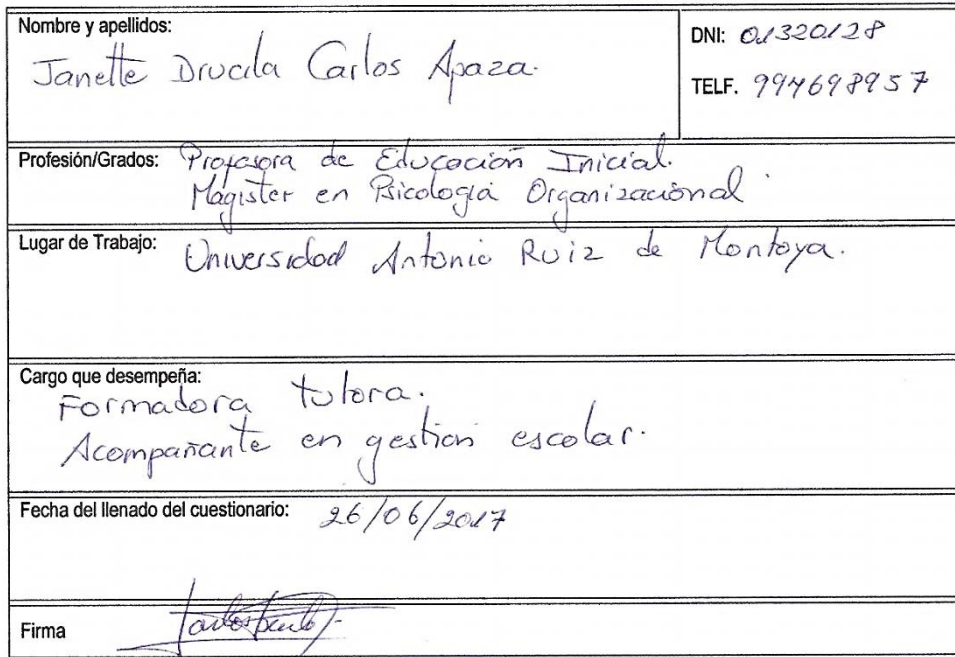 Nombre y apellidos:
Janette Drucila Carlos Apaza.
DNI: 01320128
TELF. 994698957
Profesión/Grados: Profesora de Educación Inicial.
Magister en Psicología Organizacional.
Lugar de Trabajo: Universidad Antonio Ruiz de Montoya.
Cargo que desempeña:
Formadora tutora.
Acompañante en gestion escolar.
Fecha del llenado del cuestionario: 26/06/2017
Firma